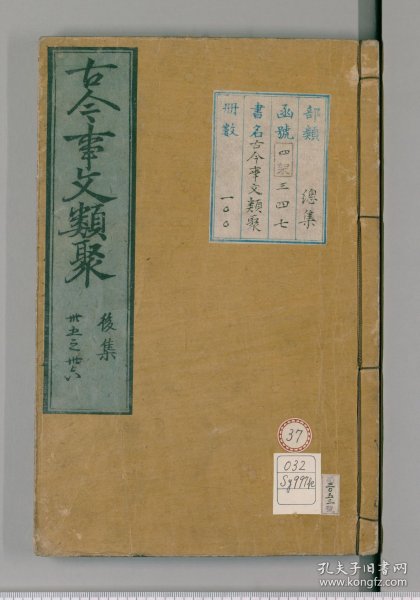 古今事文類聚
後集
卅五之卅六
部類 總集
函號 四架三四七
書名 古今事文類聚
冊數 一〇〇
37
032
二〇五三號
孔夫子旧书网
www.kongfz.com